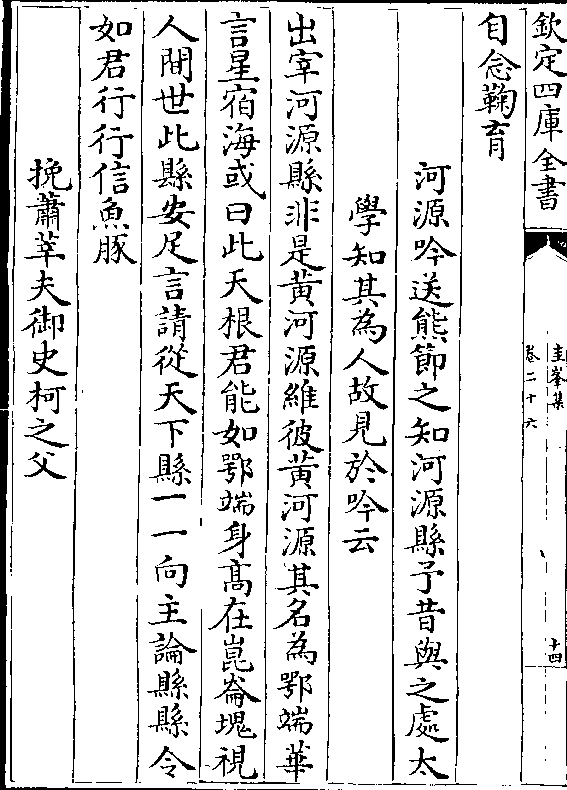 欽定四庫全書
圭峯集
卷二十六
十四
自念鞠育
河源吟送熊節之知河源縣予昔與之處太
學知其為人故見於吟云
出宰河源縣非是黄河源維彼黄河源其名為鄂端華
言星宿海或曰此天根君能如鄂端身髙在崑崙塊視
人間世此縣安足言請從天下縣一一向主論縣縣令
如君行行信魚豚
挽蕭莘夫御史柯之父